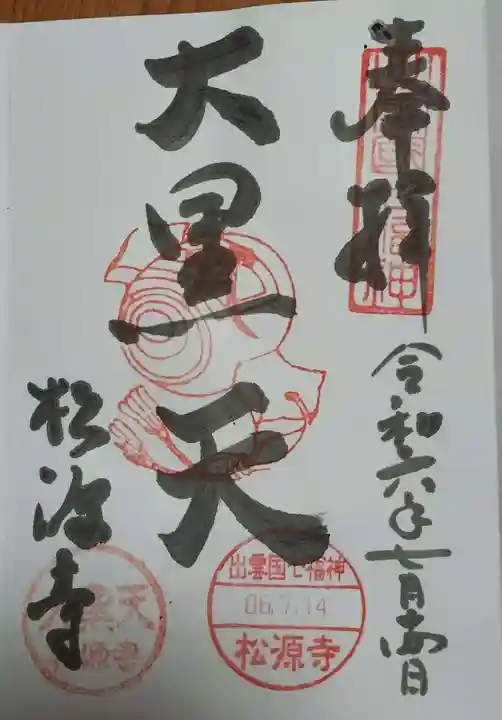 奉拝
令和六年七月十四日
大黒天
松源寺
出雲国七福神
06.7.14
松源寺